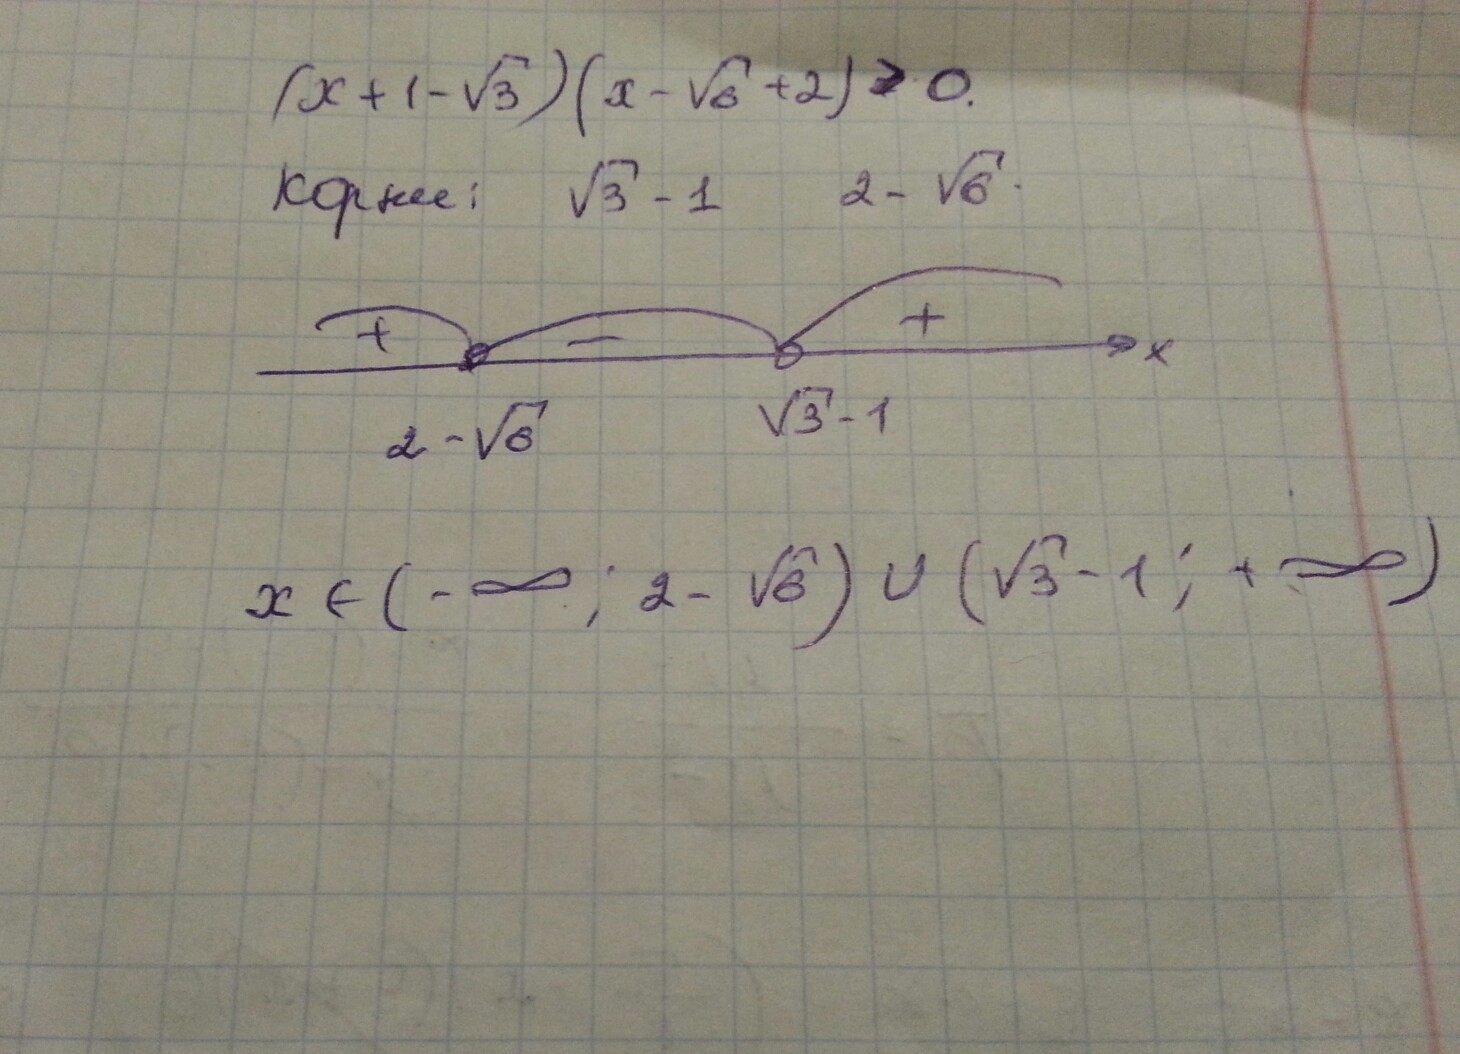 (x+1-√3)(x-√6+2) > 0.
Корни: √3-1 2-√6.
+ - + x
2-√6 √3-1
x ∈ (-∞; 2-√6) ∪ (√3-1; +∞)